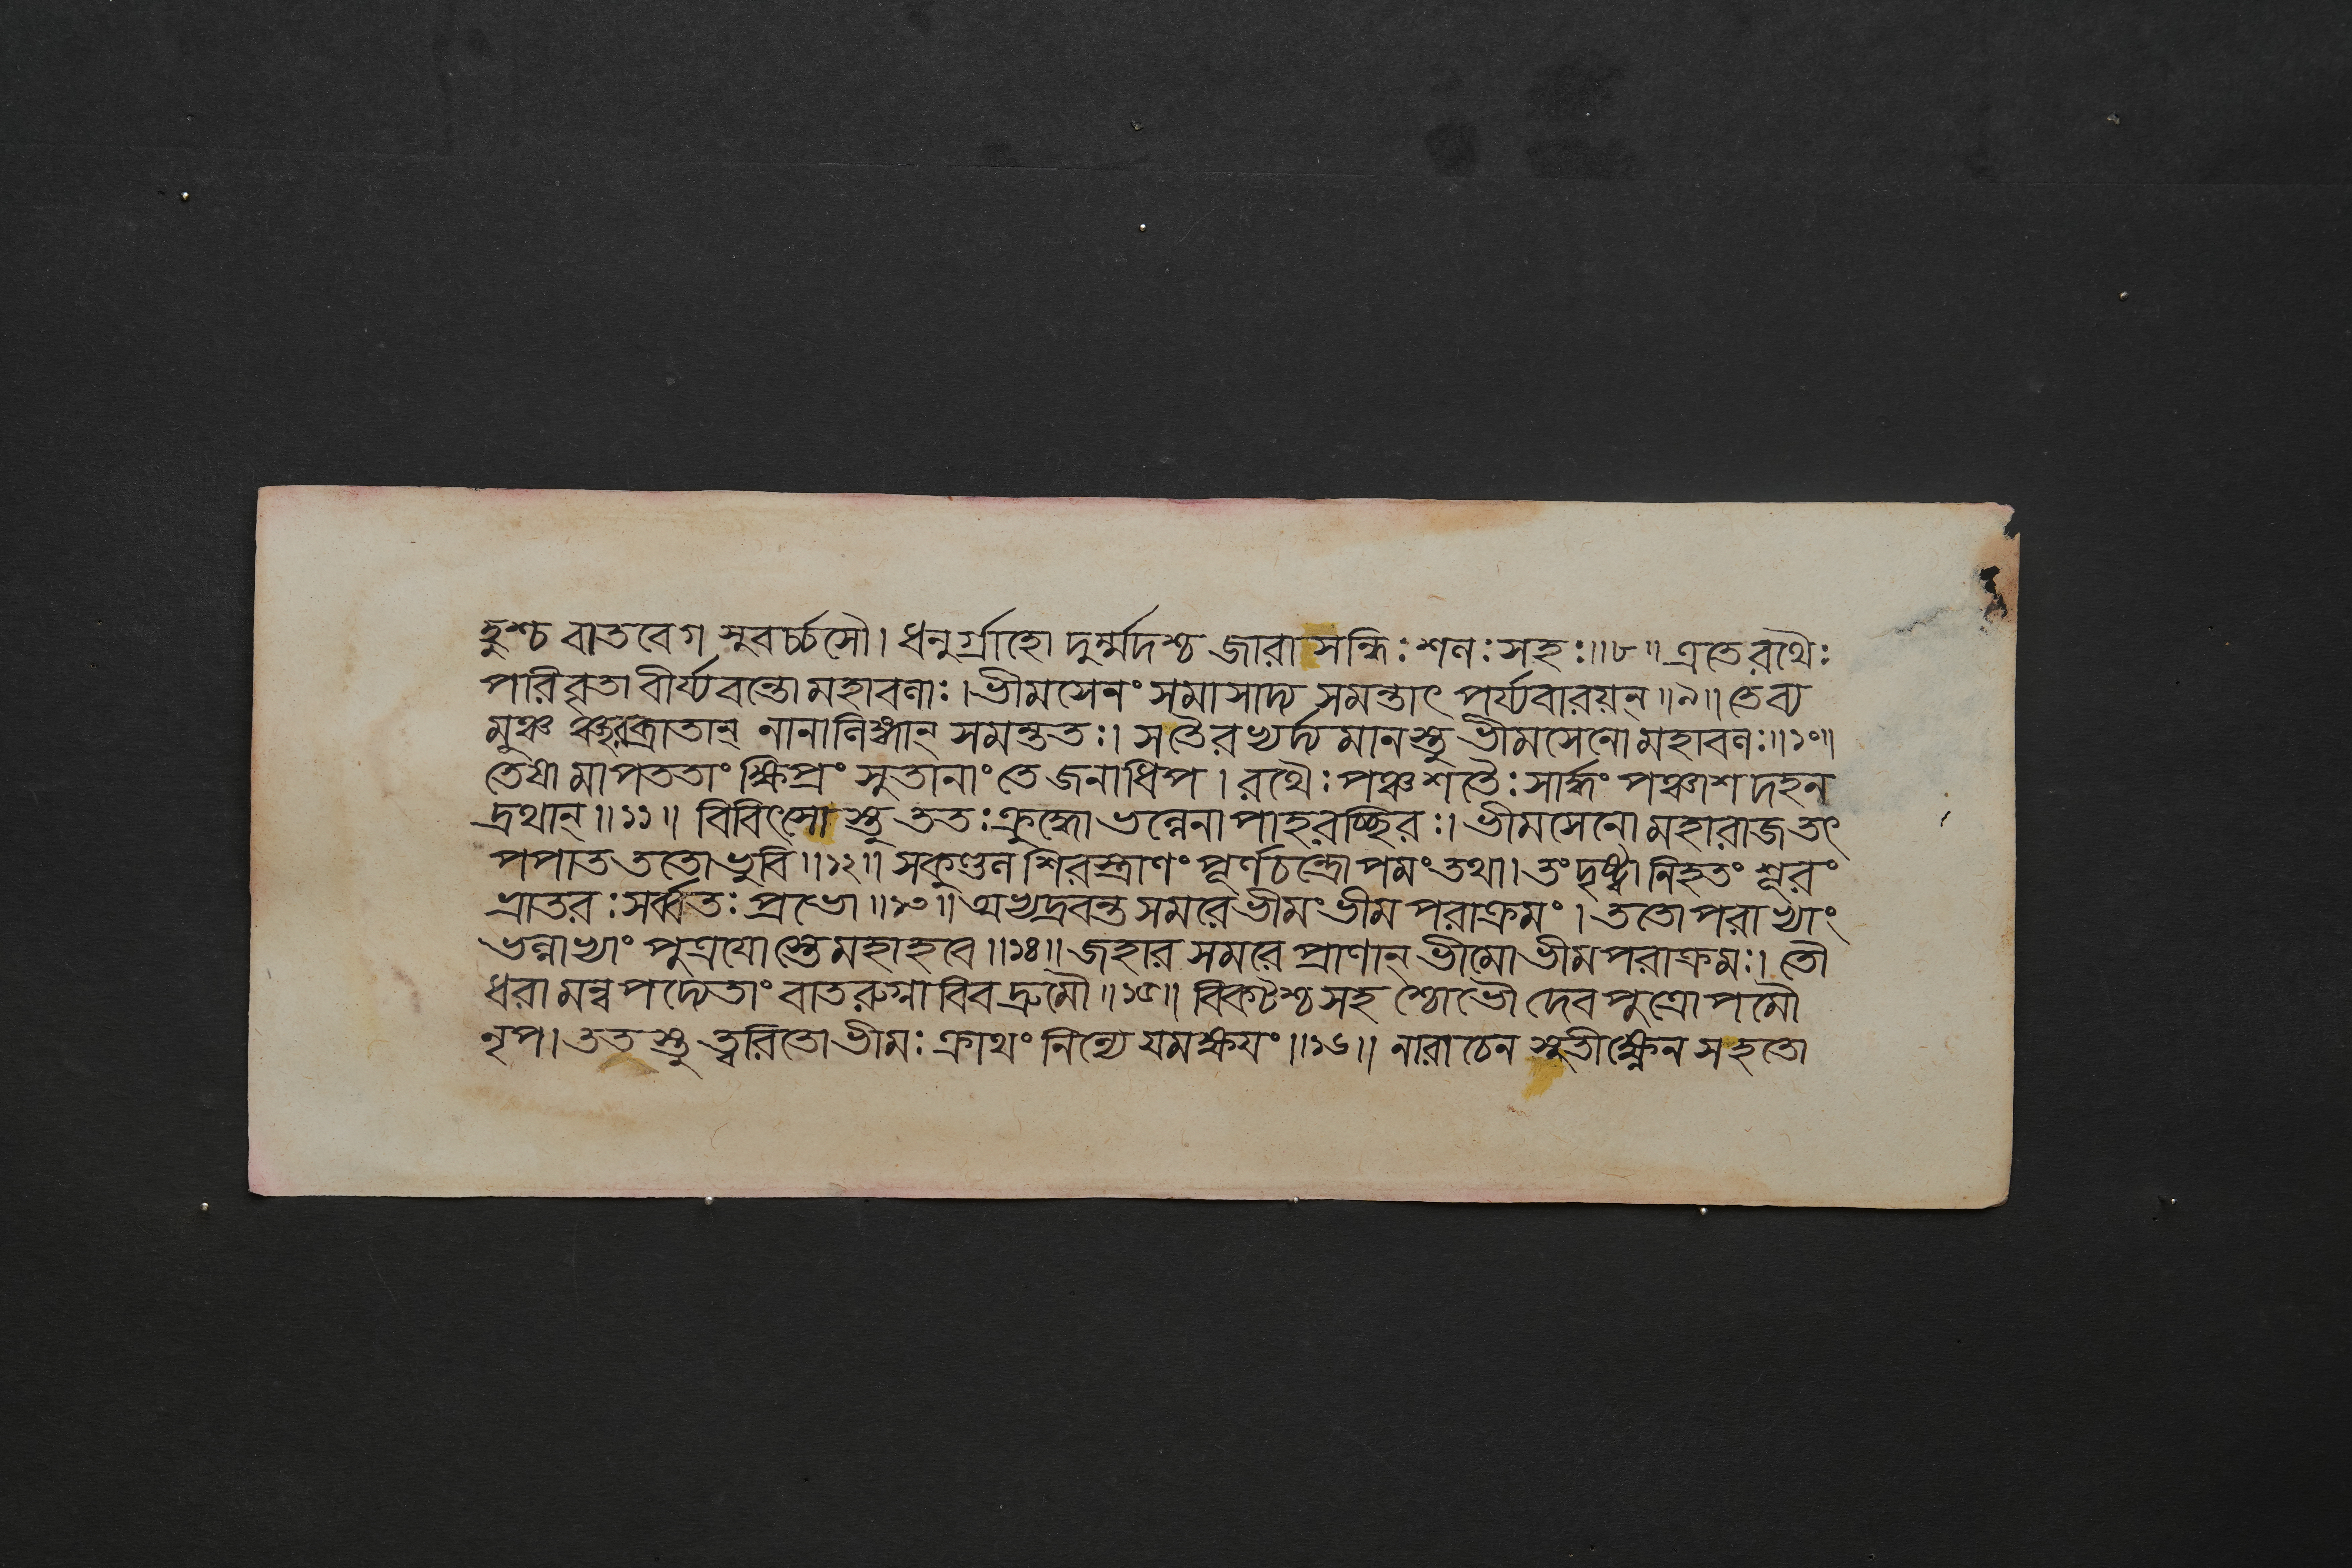 হুশ্চ বাতবেগ সুবর্চ্চসৌ। ধনুর্গ্রাহো দুর্ম্মদশ্চ জারাসন্ধিঃ শলঃ সহঃ॥৮॥ এতে রথৈঃ
পরিবৃতা বীর্য্যবন্তো মহাবলাঃ। ভীমসেনং সমাসাদ্য সমন্তাৎ পর্য্যবারয়ন্॥৯॥ তে ব্য
মুঞ্চ ঞ্ছরব্রাতান্ নানালিঙ্গান্ সমন্ততঃ। সতৈরভ্যর্দ্যমানস্তু ভীমসেনো মহাবলঃ॥১০॥
তেষামাপততাং ক্ষিপ্রং সুতানাং তে জনাধিপ। রথৈঃ পঞ্চশতৈঃ সার্দ্ধং পঞ্চাশদহন
দ্রথান্॥১১॥ বিবিৎসোস্তু ততঃ ক্রুদ্ধো ভল্লেনাপাহরচ্ছিরঃ। ভীমসেনো মহারাজ তৎ
পপাত ততো ভুবি॥১২॥ সকুণ্ডল শিরস্ত্রাণং পূর্ণচন্দ্রোপমং তথা। তং দৃষ্ট্বা নিহতং শূরং
ভ্রাতরঃ সর্ব্বতঃ প্রভো॥১৩॥ অভ্যদ্রবন্ত সমরে ভীমং ভীম পরাক্রমং। ততো পরাভ্যাং
ভল্লাভ্যাং পুত্রযোস্তে মহাহবে॥১৪॥ জহার সমরে প্রাণান্ ভীমো ভীমপরাক্রমঃ। তৌ
ধরামন্বপদ্যেতাং বাতরুগ্নাবিব দ্রুমৌ॥১৫॥ বিকটশ্চ সহ শ্চোভৌ দেবপুত্রোপমৌ
নৃপ। ততস্তু ত্বরিতো ভীমঃ ক্রাথং নিন্যে যমক্ষযং॥১৬॥ নারাচেন সুতীক্ষ্ণেন সহতো